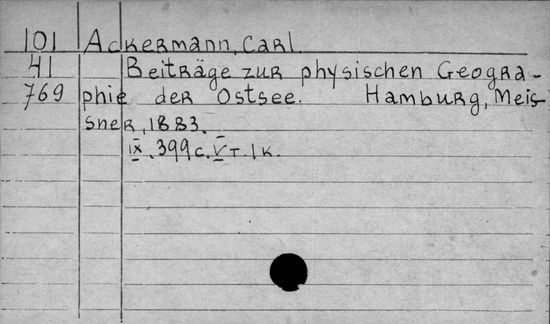 101 Ackermann, Carl.
41 Beiträge zur physischen Geogra-
769 phie der Ostsee. Hamburg, Meis-
sner, 1883.
IX, 399 c. V т. 1 к.